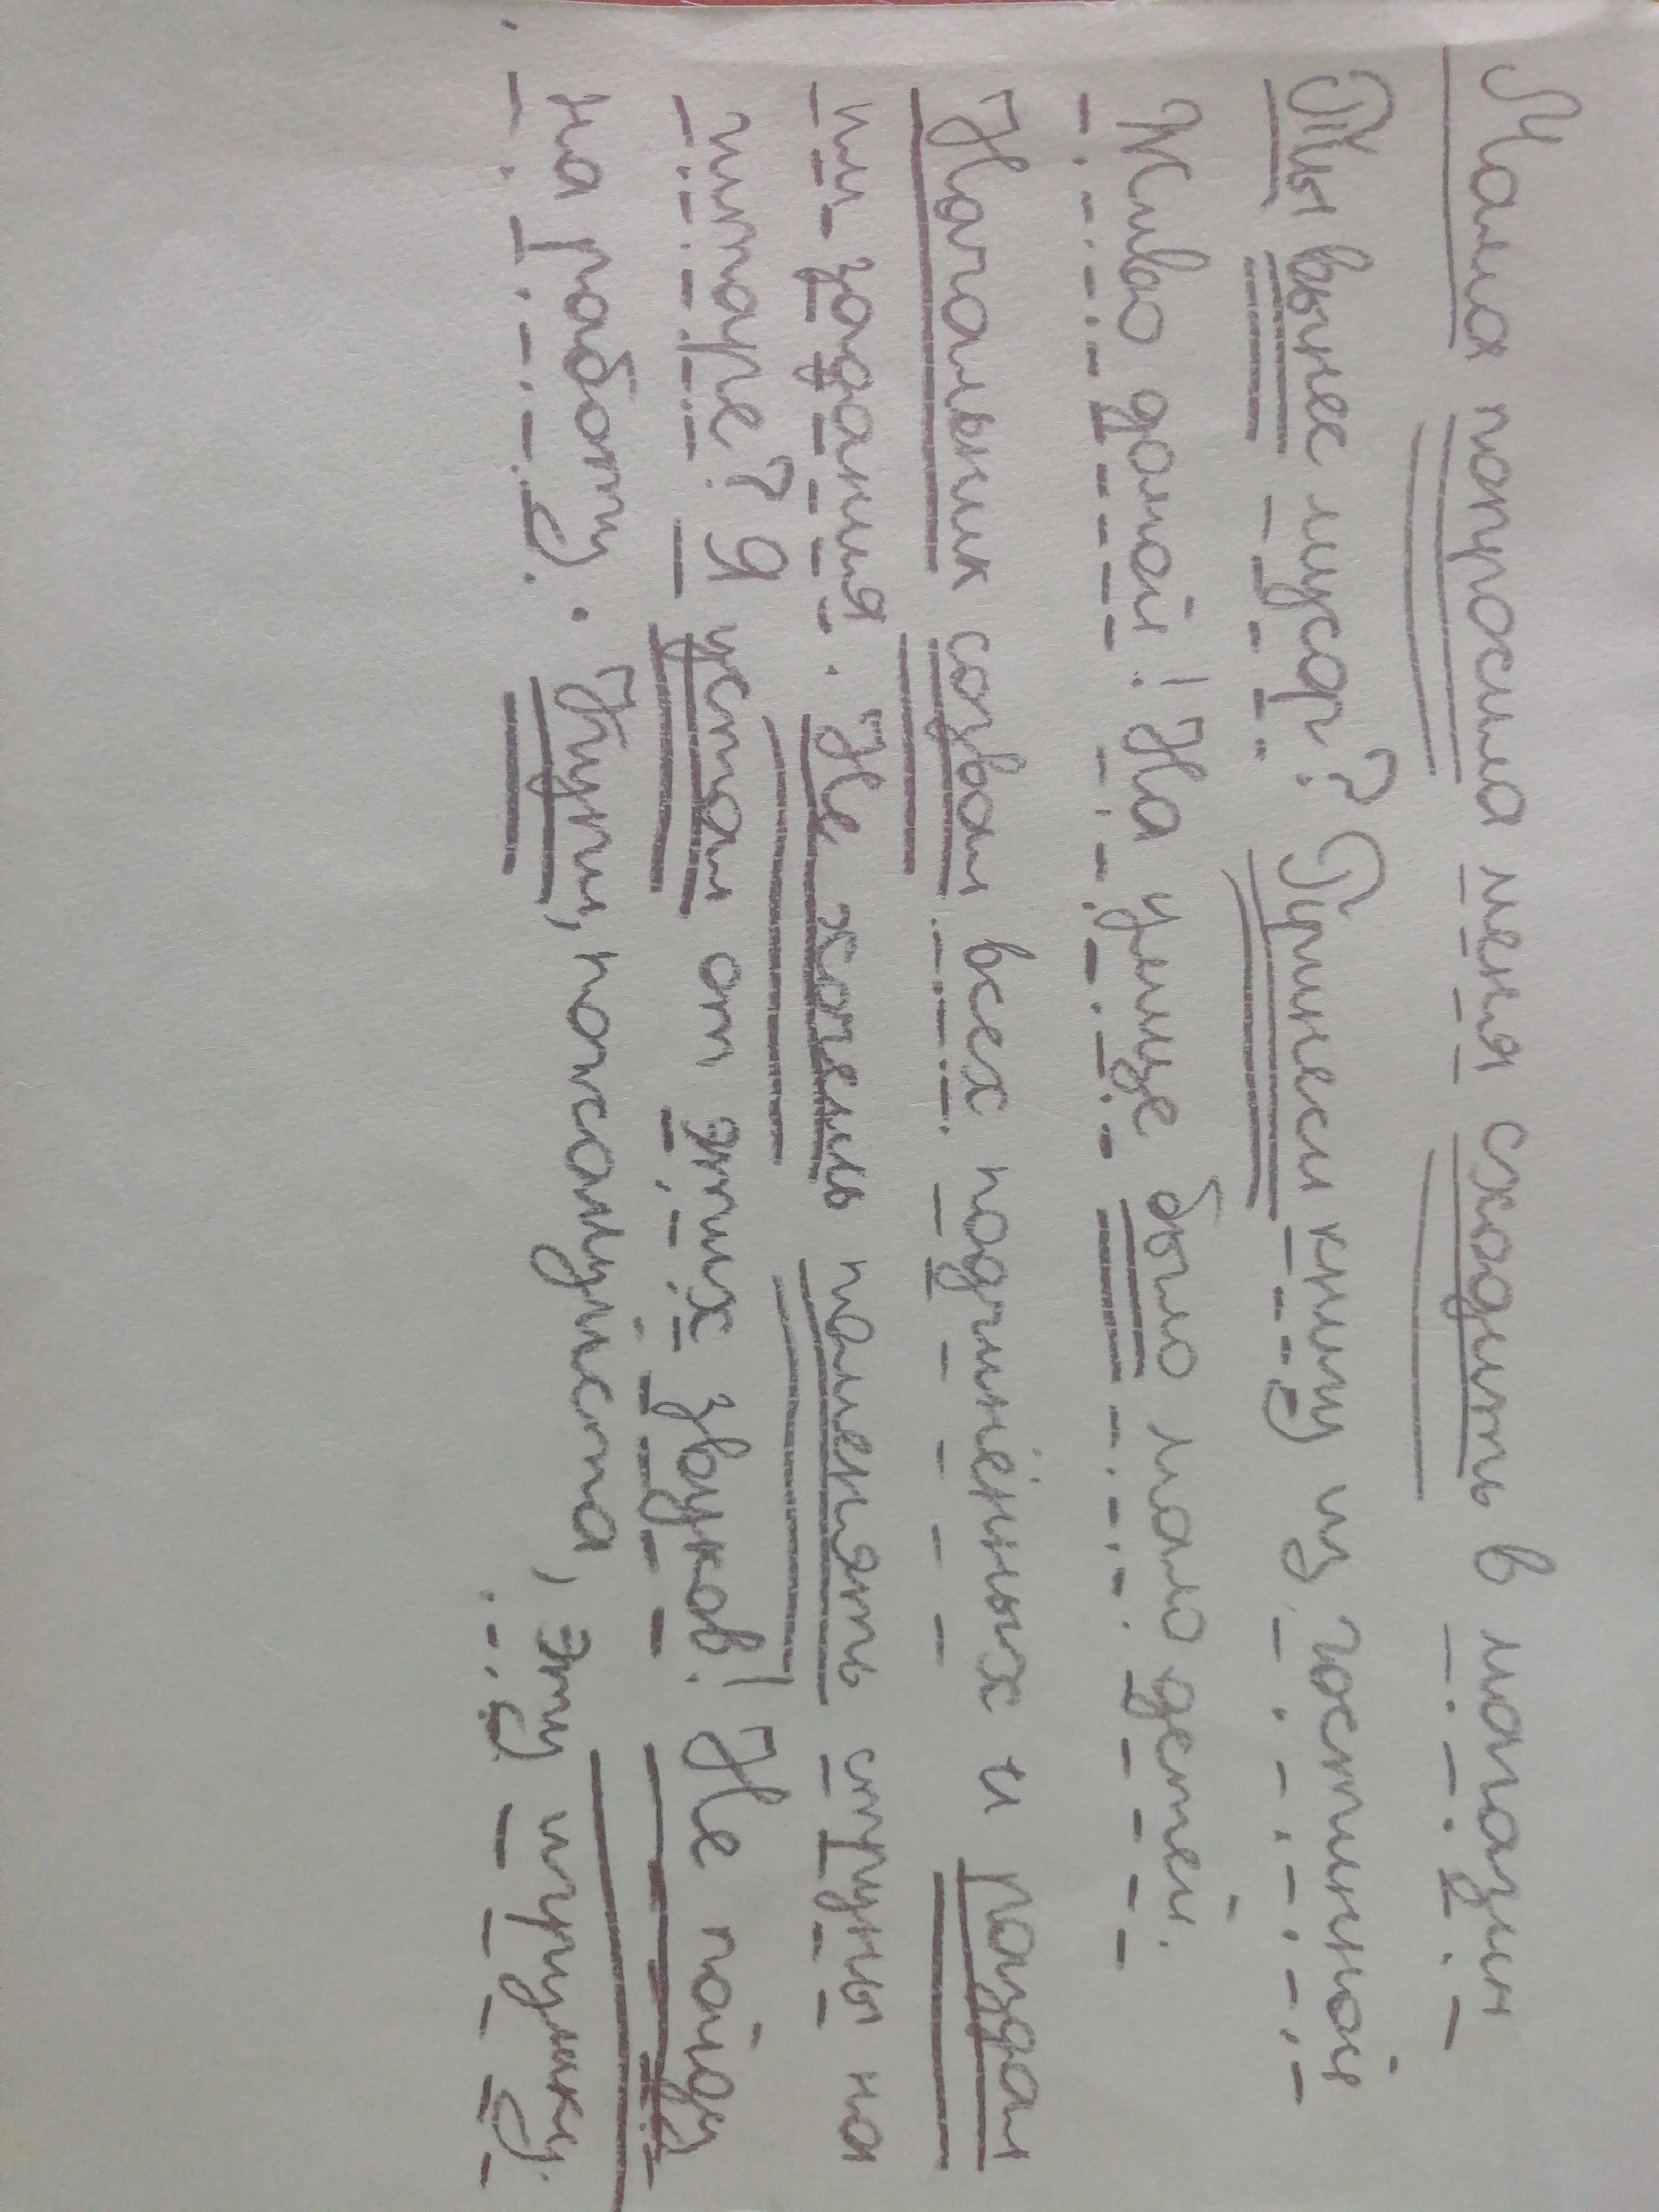 Мама попросила меня сходить в магазин
Ты вынес мусор? Принеси книгу из гостинной
Живо домой! На улице было мало детей.
Начальник созвал всех подчинённых и раздал
им задания. Не хочешь поменять струны на
гитаре? Я устал от этих звуков! Не пойду
на работу. Купи, пожалуйста, эту игрушку.